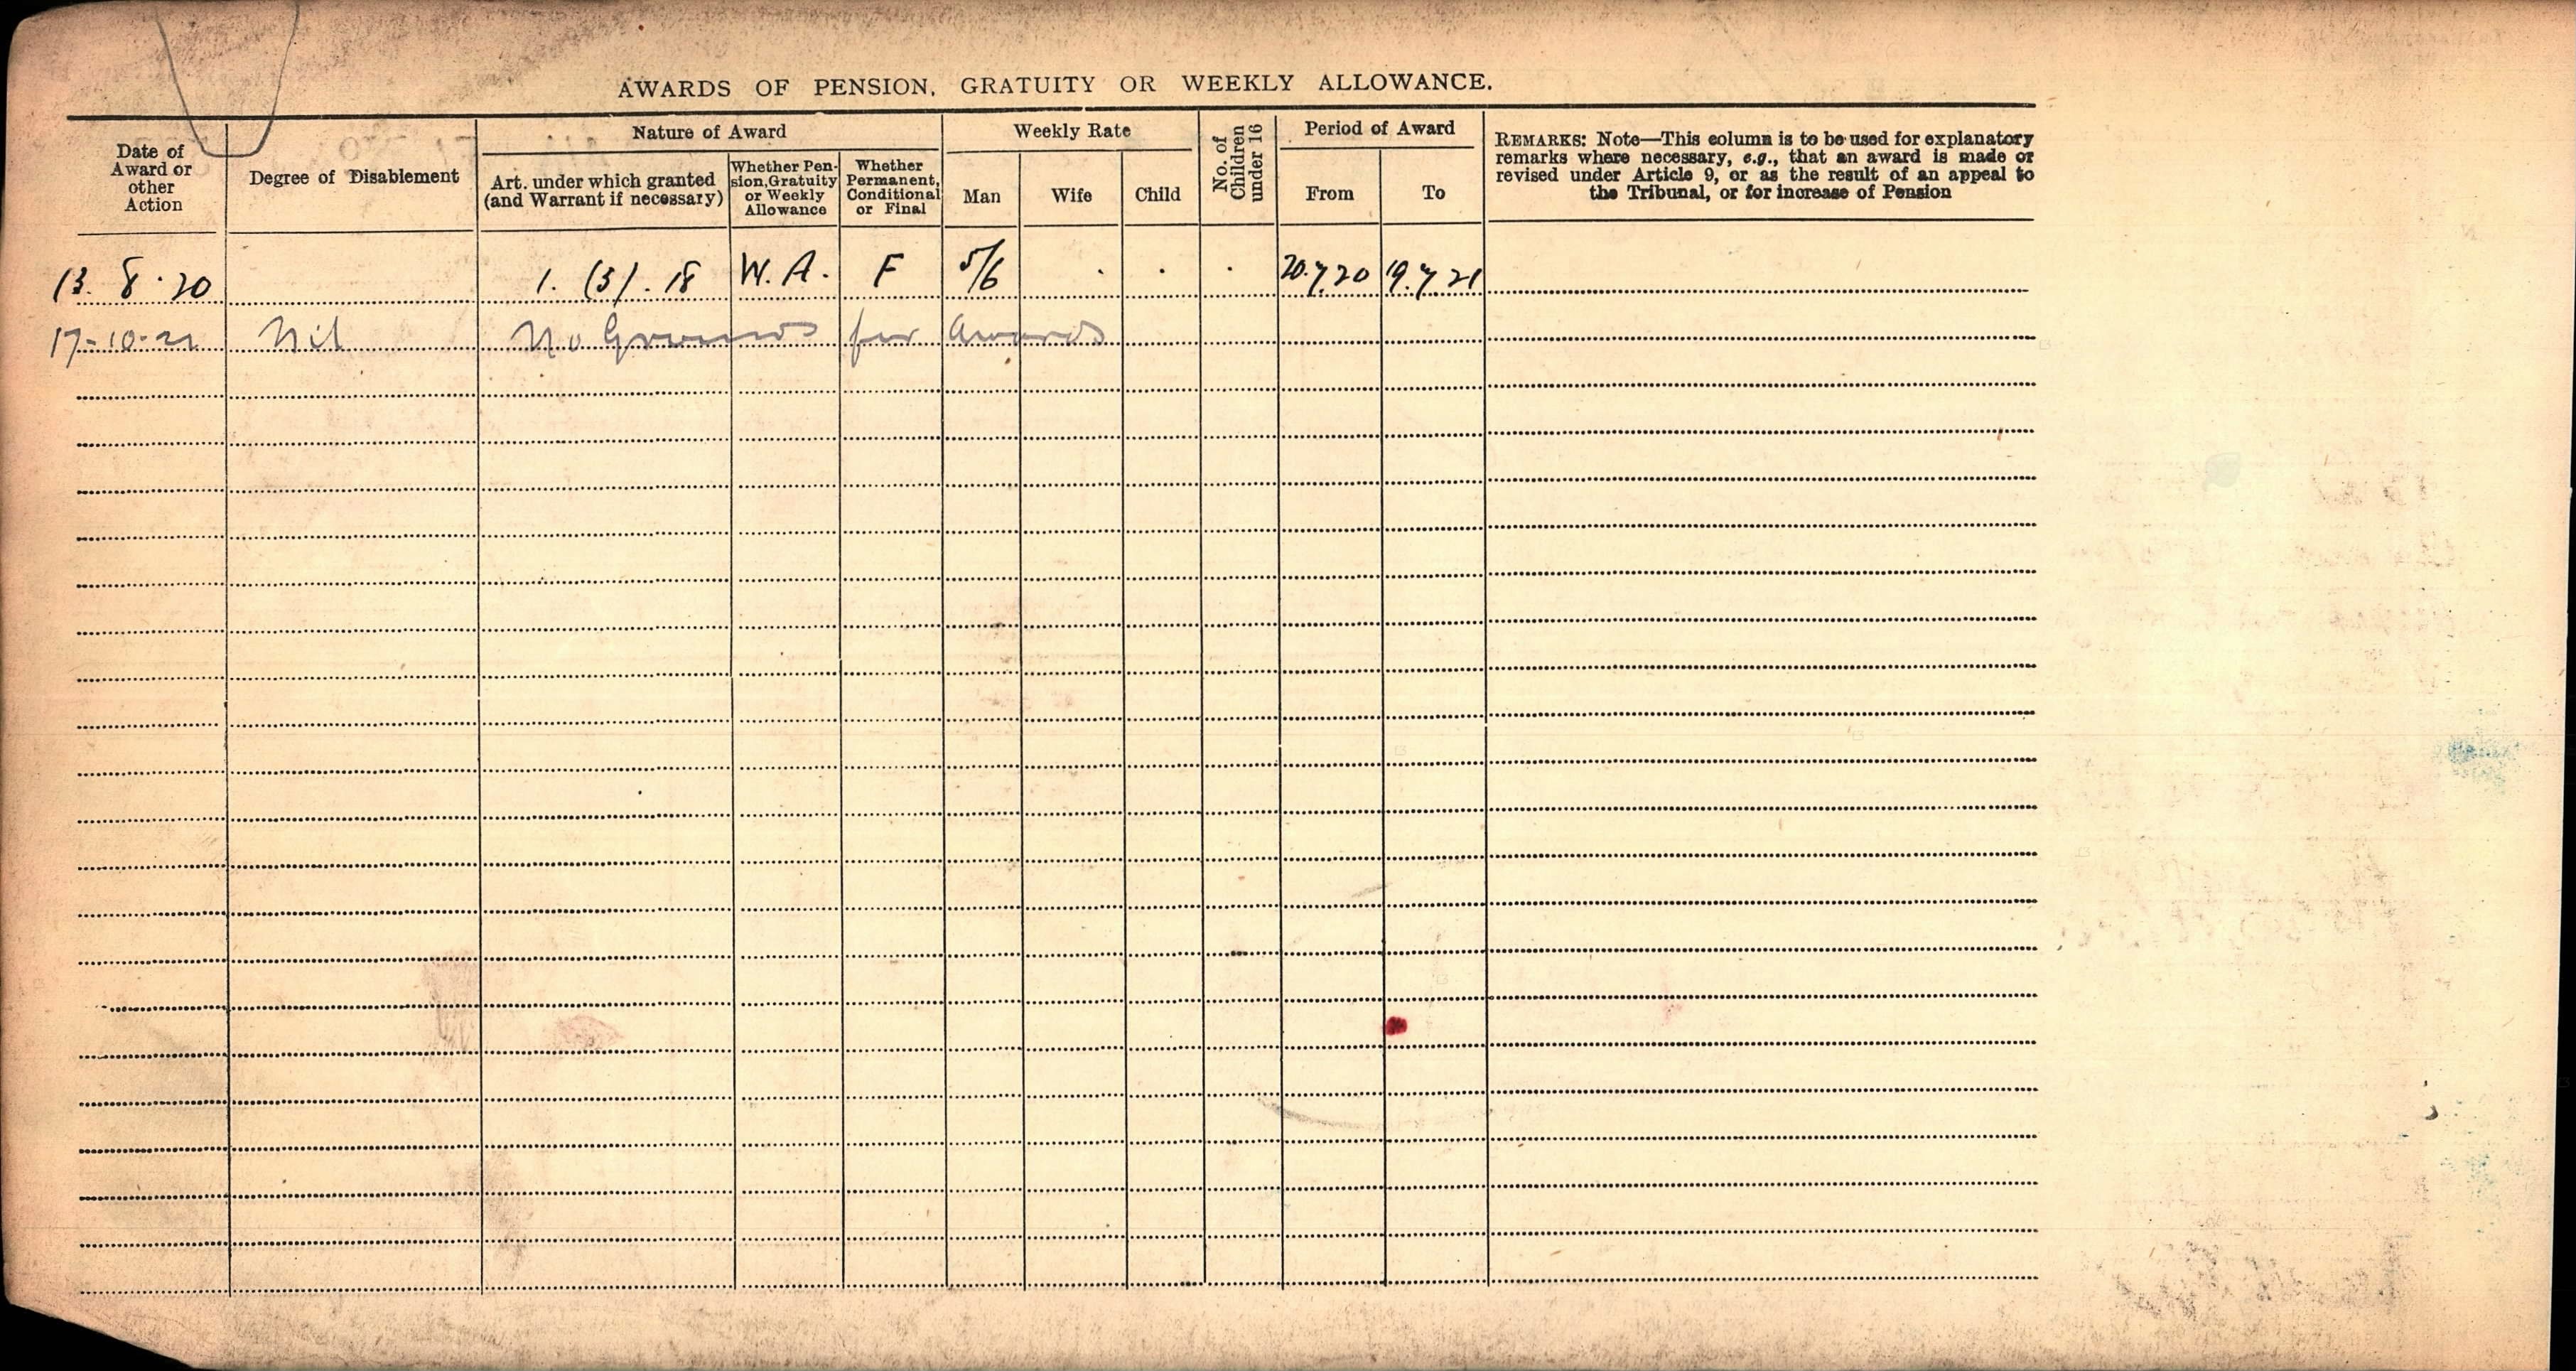 AWARDS OF PENSION, GRATUITY OR WEEKLY ALLOWANCE.
Date of
Award or
other
Action
Degree of Disablement
Nature of Award
Art. under which granted
(and Warrant if necessary)
Whether Pen-
sion, Gratuity
or Weekly
Allowance
Whether
Permanent,
Conditional
or Final
Weekly Rate
Man
Wife
Child
No. of
Children
under 16
Period of Award
From
To
REMARKS: Note—This column is to be used for explanatory
remarks where necessary, e.g., that an award is made or
revised under Article 9, or as the result of an appeal to
the Tribunal, or for increase of Pension
13. 8. 20 1. (3). 18 W. A. F 5/6 . . . 20.7.20 19.7.21
17-10-21 Nil No Grounds for Awards